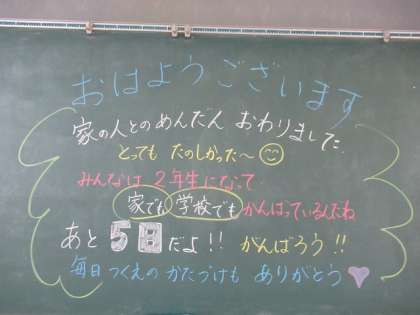 おはようございます
家の人とのめんだん おわりました
とっても たのしかった〜
みんなは 2年生になって
家でも 学校でも がんばっているんだね
あと 5日 だよ!! がんばろう!!
毎日 つくえの かたづけも ありがとう